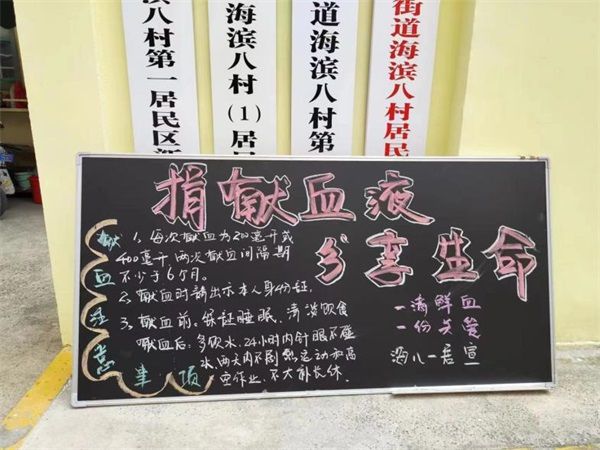 滨八村第一居民区
海滨八村(1)居
道海滨八村第
街道海滨八村居民
捐献血液
分享生命
献血注意事项
1、每次献血为200毫升或
400毫升,两次献血间隔期
不少于6个月。
2、献血时请出示本人身份证。
3、献血前:保证睡眠、清淡饮食
献血后:多饮水、24小时内针眼不碰
水、两天内不剧烈运动和高
空作业、不大补长休。
一滴鲜血
一份关爱
海八一居宣